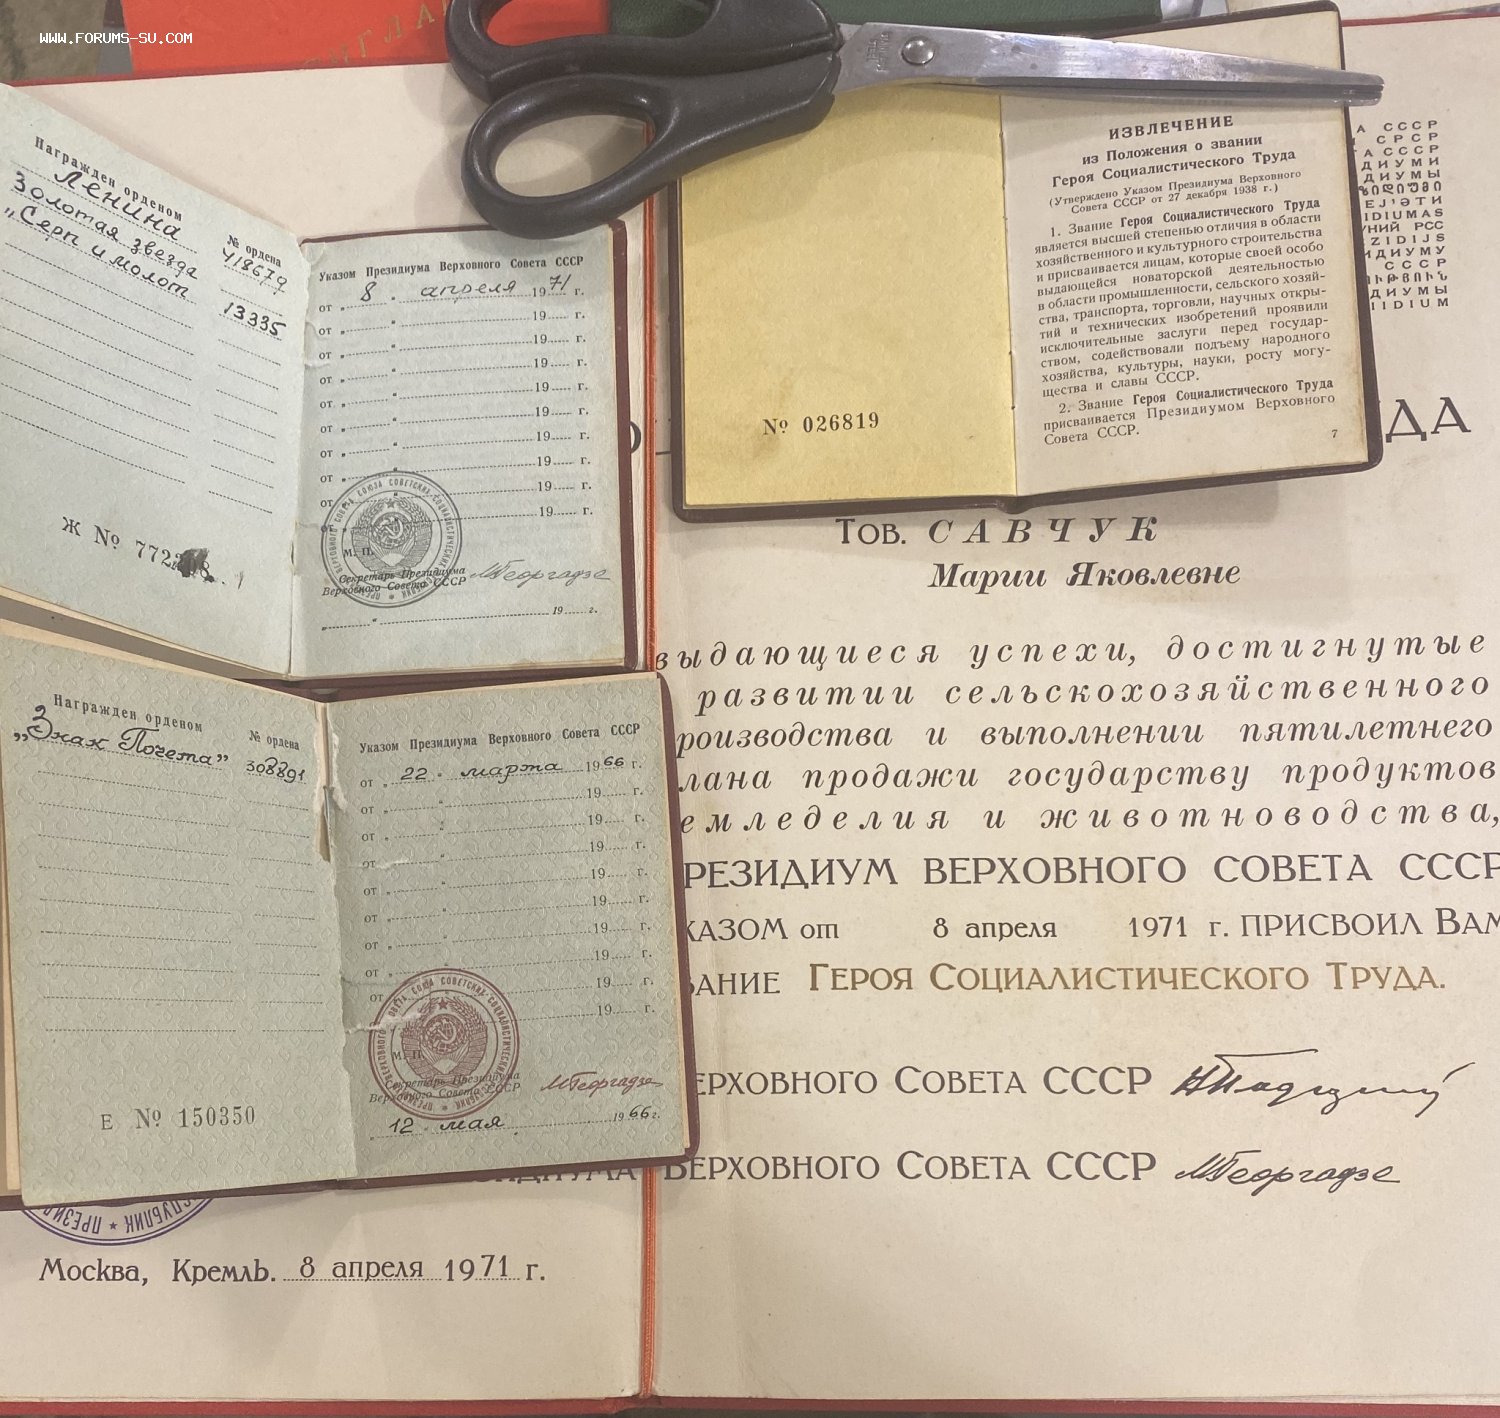 www.forums-su.com
АНГЛА
Награжден орденом
Ленина
№ ордена
418679
Золотая звезда
„Серп и молот
13335
Ж № 772
Указом Президиума Верховного Совета СССР
от „ 8 “ апреля 1971 г.
от „ “ 19 г.
от „ “ 19 г.
от „ “ 19 г.
от „ “ 19 г.
от „ “ 19 г.
от „ “ 19 г.
от „ “ 19 г.
от „ “ 19 г.
от „ “ 19 г.
М. П.
Секретарь Президиума
Верховного Совета СССР МГеоргадзе
„ “ 19 г.
Награжден орденом
№ ордена
„Знак Почета”
308891
Е № 150350
Указом Президиума Верховного Совета СССР
от „ 22 “ марта 1966 г.
от „ “ 19 г.
от „ “ 19 г.
от „ “ 19 г.
от „ “ 19 г.
от „ “ 19 г.
от „ “ 19 г.
от „ “ 19 г.
от „ “ 19 г.
от „ “ 19 г.
М. П.
Секретарь Президиума
Верховного Совета СССР МГеоргадзе
„ 12 “ мая 1966 г.
№ 026819
ИЗВЛЕЧЕНИЕ
из Положения о звании
Героя Социалистического Труда
(Утверждено Указом Президиума Верховного
Совета СССР от 27 декабря 1938 г.)
1. Звание Героя Социалистического Труда
является высшей степенью отличия в области
хозяйственного и культурного строительства
и присваивается лицам, которые своей особо
выдающейся новаторской деятельностью
в области промышленности, сельского хозяй-
ства, транспорта, торговли, научных откры-
тий и технических изобретений проявили
исключительные заслуги перед государ-
ством, содействовали подъему народного
хозяйства, культуры, науки, росту могу-
щества и славы СССР.
2. Звание Героя Социалистического Труда
присваивается Президиумом Верховного
Совета СССР.
7
А СССР
СРСР
ТА СССР
ДИУМИ
ДИУМЫ
ЕЈ’ӘТИ
IDIUMAS
УНИЙ РСС
ZIDIJS
ИДИУМУ
СССР
ДИУМЫ
IIDIUM
ДА
Тов. САВЧУК
Марии Яковлевне
выдающиеся успехи, достигнутые
развитии сельскохозяйственного
роизводства и выполнении пятилетнего
лана продажи государству продуктов
емледелия и животноводства,
РЕЗИДИУМ ВЕРХОВНОГО СОВЕТА СССР
КАЗОМ от 8 апреля 1971 г. ПРИСВОИЛ ВАМ
ВАНИЕ ГЕРОЯ СОЦИАЛИСТИЧЕСКОГО ТРУДА.
ЕРХОВНОГО СОВЕТА СССР НПодгорный
ЗИДИУМА ВЕРХОВНОГО СОВЕТА СССР МГеоргадзе
Москва, Кремль. 8 апреля 1971 г.